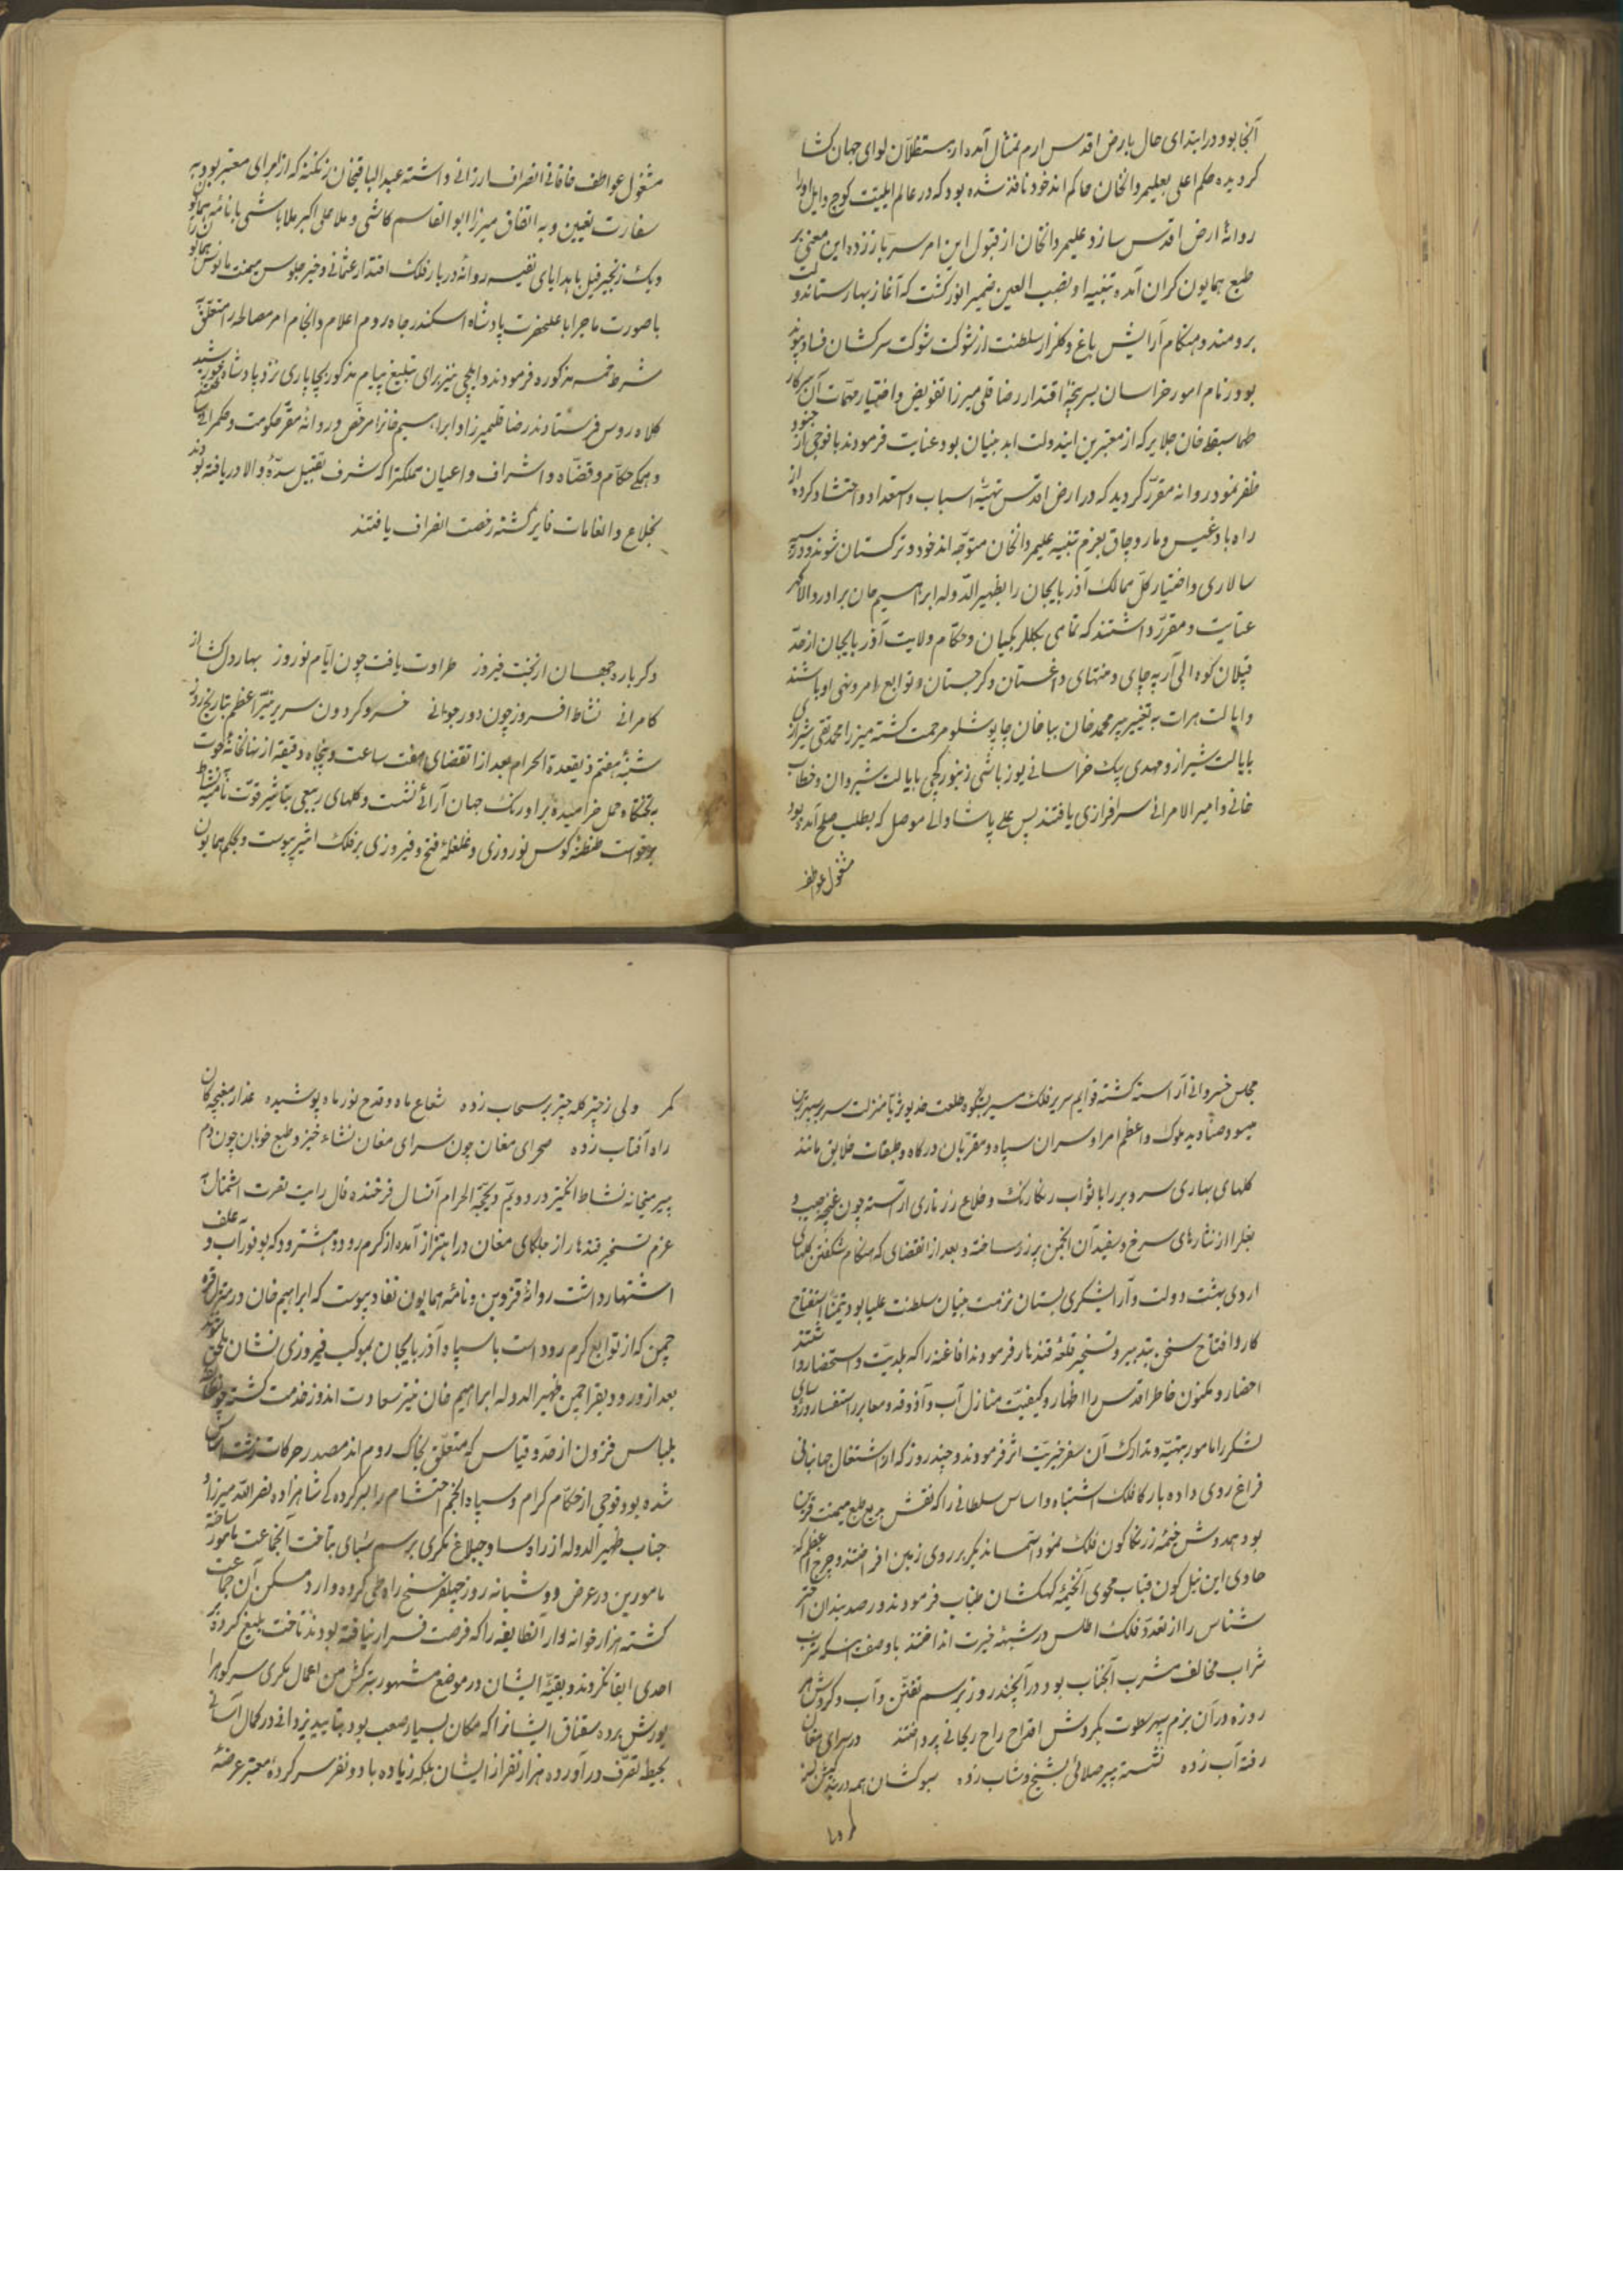 آنجا بود در ابتدای حال بارض اقدس ارم تمثال آمده از مستظلّان لوای جهان کشا
کردیده حکم اعلی بعلیمردانخان حاکم اندخود نافذ شده بود که در عالم ایلیّت کوچ و ایل او را
روانهٔ ارض اقدس سازد علیمردانخان از قبول این امر سر باز زده این معنی بر
طبع همایون کران آمده تنبیه او نصب العین ضمیر انور کشت که آغاز بهارستان دولت
برومند و هنکام آرایش باغ و کلزار سلطنت از شوکت سرکشان فساد پیوند
بود زمام امور خراسان بسرپنجهٔ اقتدار رضا قلی میرزا تفویض و اختیار مهمّات آن سرکار
طهماسبقلی خان جلایر که از معتبرین ایندولت ابد بنیان بود عنایت فرمودند با فوجی از جنود
ظفر نمود روانه مقرّر کردید که در ارض اقدس تهیّهٔ اسباب و استعداد و احتشاد کرده از
راه بادغیس و ماروچاق بعزم تنبیه علیمردانخان متوجّه اندخود و ترکستان شوند و سپه
سالاری و اختیار کلّ ممالک آذربایجان را بظهیر الدّوله ابراهیم خان برادر والا کهر
عنایت و مقرّر داشتند که تمامی بکلربکیان و حکّام ولایت آذربایجان از حدّ
قپلان کوه الی آرپه چای و منتهای داغستان و کرجستان و توابع بامر و نهی او باشند
و ایالت هرات به تغییر پیر محمد خان بباباخان چاپوشلو مرحمت کشته میرزا محمد تقی شیرازی
بایالت شیراز و مهدی بیک خراسانی یوزباشی زنبورکچی بایالت شیروان و خطاب
خانی و امیر الامرائی سرافرازی یافتند پس علی پاشا والی موصل که بطلب صلح آمده بود
مشغول عواطف
مشغول عواطف خاقانی انصراف ارزانی داشته عبد الباقیخان زنکنه که از امرای معتبر بود به
سفارت تعیین و به اتفاق میرزا ابوالقاسم کاشی و ملا علی اکبر ملاباشی با نامهٔ همایون
و یک زنجیر فیل با هدایای نفیسه روانهٔ دربار فلک اقتدار عثمانی و خبر جلوس میمنت مانوس همایون را
با صورت ماجرا باعلیحضرت پادشاه اسکندر جاه روم اعلام و انجام امر مصالحه را متعلّق
شرط خمسه مذکوره فرمودند و ایلچی نیز برای تبلیغ پیام مذکور بچاپاری نزد پادشاه خورشید
کلاه روس فرستادند رضا قلیمیرزا و ابراهیم خانرا مرخّص و روانهٔ مقرّ حکومت و حکمرانی
و همکی حکّام و قضاه و اشراف و اعیان مملکترا که شرف تقبیل سدّهٔ والا دریافته بودند
بخلاع و انعامات فایز کشته رخصت انصراف یافتند
دکرباره جهان از بخت فیروز طراوت یافت چون ایّام نوروز بهار دلکشا از
کامرانی نشاط افروز چون دور جوانی خسرو کردون سریر نیّر اعظم بتاریخ روز
شنبهٔ هفتم ذیقعدة الحرام بعد از انقضای هفت ساعت و پنجاه دقیقه از نهانخانهٔ حوت
بتختکاه حمل خرامیده بر اورنک جهان آرائی نشست و کلهای ربیعی بتاثیر قوّت نامیه
برخواست طنطنهٔ کوس نوروزی و غلغلهٔ فتح و فیروزی بر فلک اثیر پیوست و بحکم همایون
مجلس خسروانی آراسته کشته قوایم سریر فلک مسیر بشکوه طلعت خدیو
میسود صنادید ملوک و اعظم امرا و سران سپاه و مقرّبان درکاه و طبقات خلایق مانند
کلهای بهاری سر و بر را با ثواب رنکارنک و خلاع زرتاری آراسته چون غنچه جیب و
بغل را از نثارهای سرخ و سفید آن انجمن پر زر ساخته و بعد از انقضای که هنکام شکفتن کلهای
اردی بهشت دولت و آرایشکری بستان نزهت بنیان سلطنت علیا بود تیمّنا استفتاح
کار و افتتاح سخن بتدبیر و تسخیر قلعهٔ قندهار فرمودند افاغنه را که بلدیّت و استحضار داشتند
احضار و مکنون خاطر اقدس را اظهار و کیفیّت منازل آب و آذوقه و معابر را استفسار و روسای
لشکر را مامور بتهیّه و تدارک آن سفر خیریّت اثر فرمودند و چند روز که از اشتغال جهانبانی
فراغ روی داده بارکاه فلک اشتباه و اساس سلطانی را که نقش طبع میمنت قرین
بود همدوش خیمهٔ زنکارکون فلک نمود آسمانی دیکر بر روی زمین افراختند و چرخ اعظم که
حاوی این نیل کون قباب محوی آنخیمهٔ کهکشان طناب فرمودند و رصدبندان اختر
شناس را از تعدّد فلک اطلس در شبههٔ حیرت انداختند با وصف اینکه شرب
شراب مخالف مشرب آنجناب بود در آنچند روز برسم تفنّن و آب و کردش هر
روزه در آن بزم سپهر سطوت بکردش اقداح راح ریحانی پرداختند در سرای مغان
رفته آب زده نشسته پیر صلائی بشیخ و شاب زده سبوکشان همه در بندکیش بسته
کمر ولی ز چتر کله چتر بر سحاب زده شعاع ماه و قدح نور ماه پوشیده عذار مغبچکان
راه آفتاب زده صحرای مغان چون سرای مغان نشاء خیز و طبع خوبان چون دم
پیر میخانه نشاط انکیز در دویّم ذیحجّة الحرام آنسال فرخنده فال رایت نصرت اشتمال به
عزم تسخیر قندهار از جلکای مغان در اهتزاز آمده از کرم رود و هشترود که بوفور آب و علف
اشتهار داشت روانهٔ قزوین و نامهٔ همایون نفاذ پیوست که ابراهیم خان در منزل قره
چمن که از توابع کرم رود است با سپاه آذربایجان بموکب فیروزی نشان ملحق شوند
بعد از ورود بقراچمن ظهیر الدوله ابراهیم خان نیز سعادت اندوز خدمت کشته چون طایفهٔ
بلباس فزون از حدّ و قیاس که متعلّق بخاک روم اند مصدر حرکات زشت
شده بود فوجی از حکّام کرام و سپاه انجم احتشام را بسرکرده کی شاهزاده نصر اللّه میرزا و
جناب ظهیر الدوله از راه ساوجبلاغ مکری برسم شبای بتاخت آنجماعت مامور ساخته
مامورین در عرض دو شبانه روز چهلفرسنخ راه طی کرده وارد مسکن آن جماعت
کشته هزار خوانه وار آنطایفه را که فرصت فرار نیافته بودند تاخت بلیغ کرده
احدی ابقا نکردند و بقیّهٔ ایشان در موضع مشهور بترکش من اعمال مکری سر کوه را
یورش برده سقناق ایشانرا که مکان بسیار صعب بود بتایید یزدانی در کمال آسانی
بحیطهٔ تصرّف درآورده هزار نفر از ایشان بلکه زیاده با دو نفر سرکردهٔ معتبر عرضهٔ